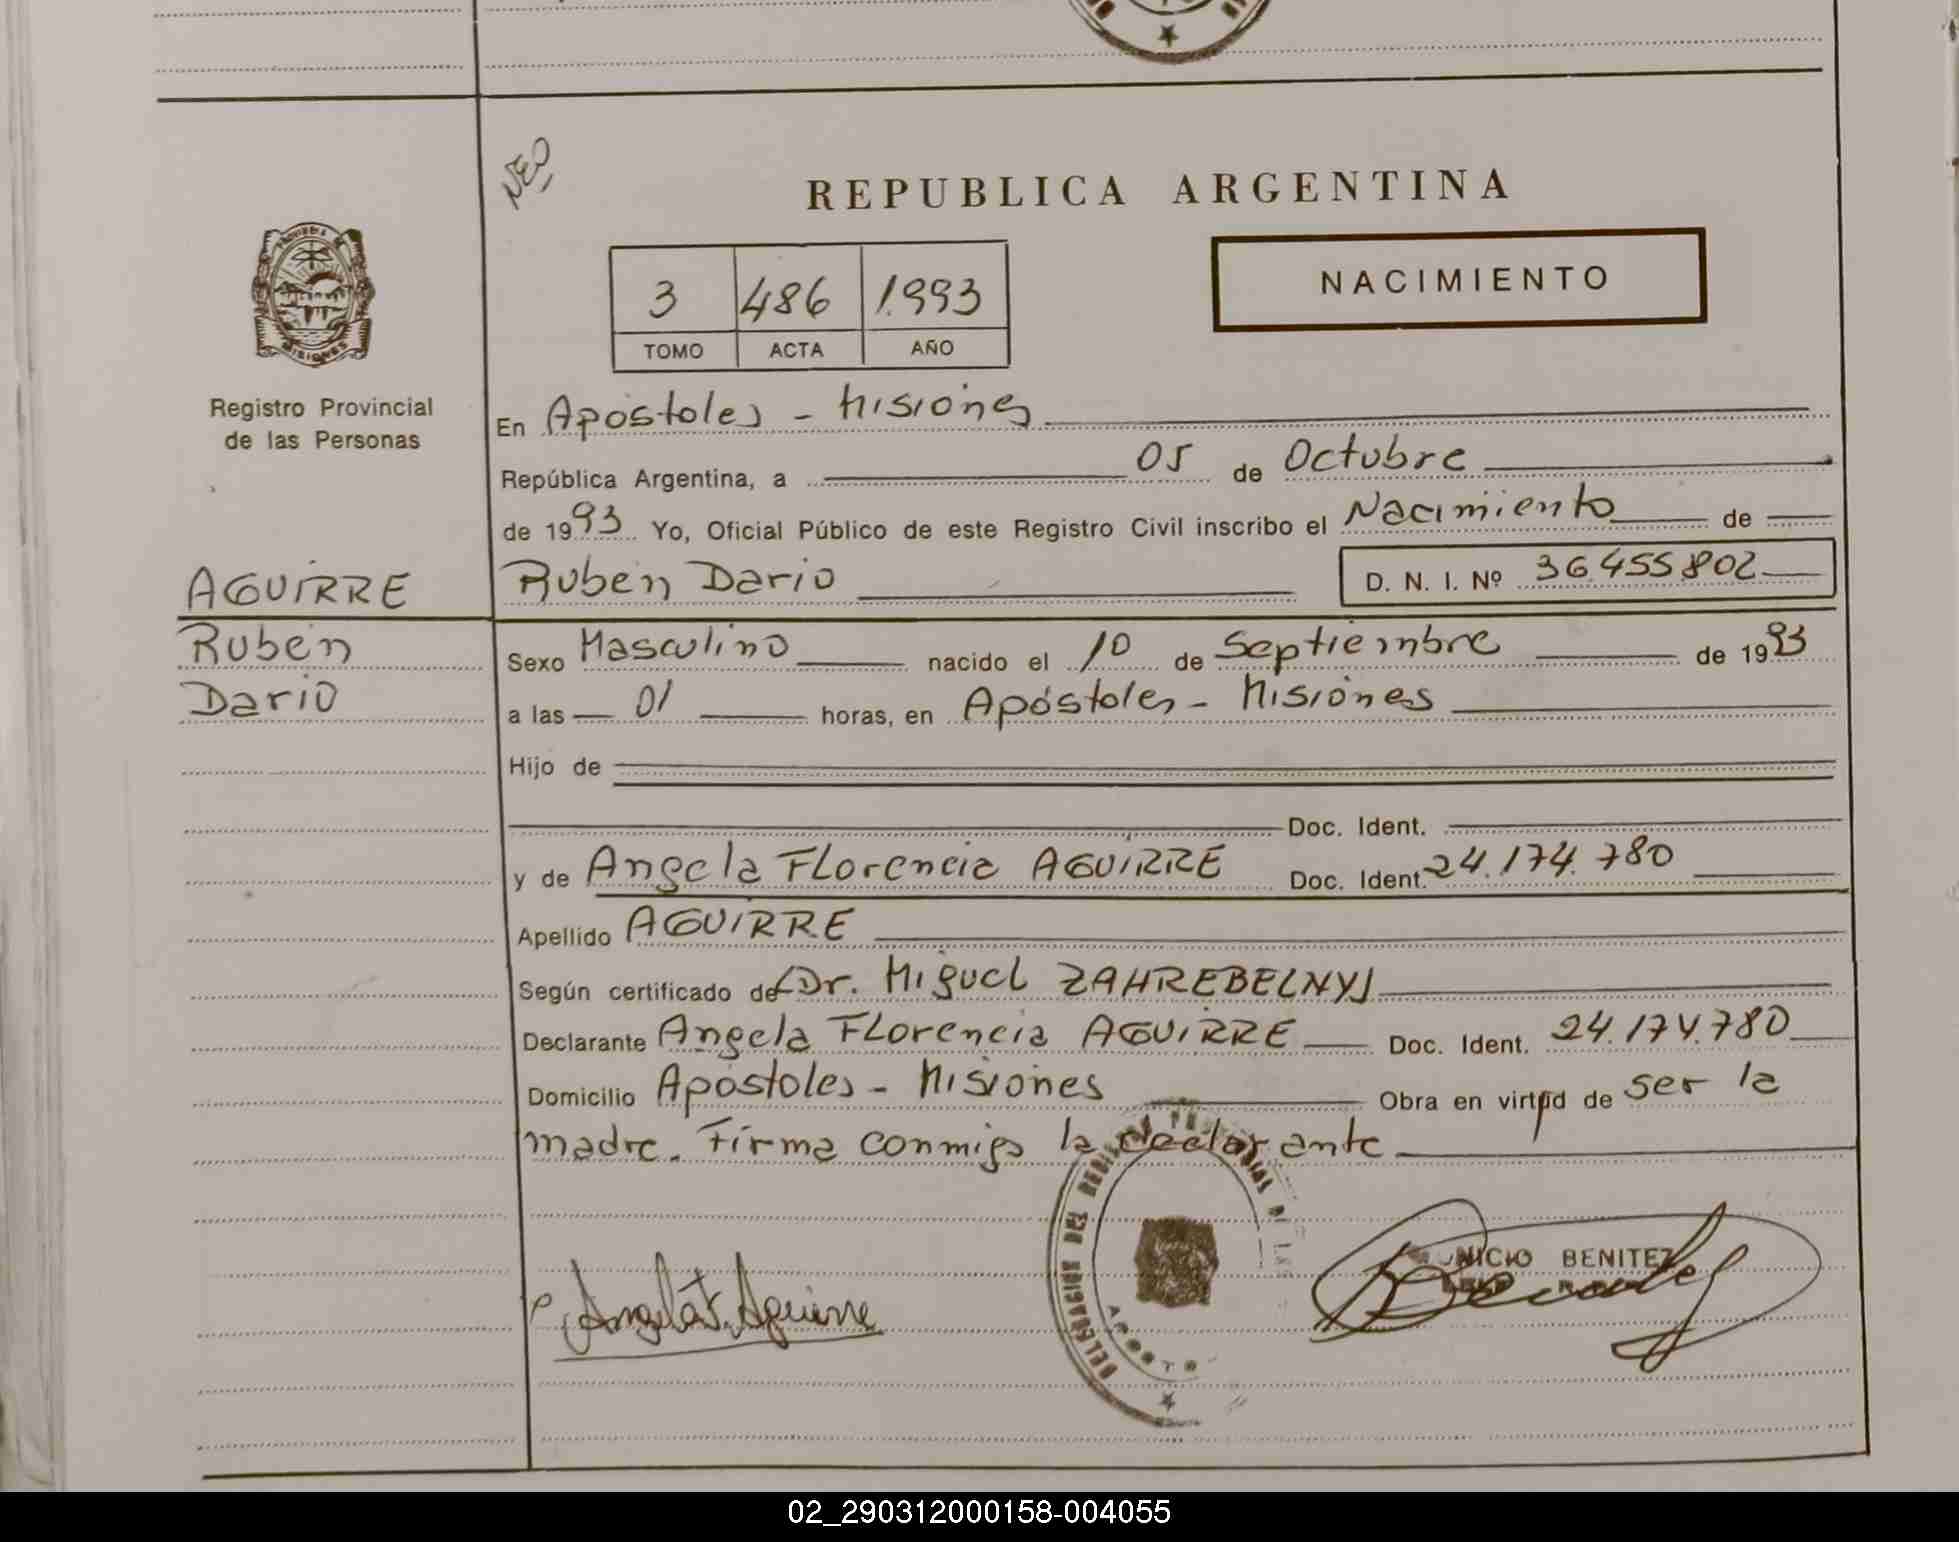 NEO
REPUBLICA ARGENTINA
3 486 1.993
TOMO ACTA AÑO
NACIMIENTO
PROVINCIA DE
MISIONES
Registro Provincial
de las Personas
En Apóstoles - Misiones
República Argentina, a 05 de Octubre
de 1993 Yo, Oficial Público de este Registro Civil inscribo el Nacimiento de
AGUIRRE
Rubén
Dario
Rubén Dario D. N. I. Nº 36.455.802
Sexo Masculino nacido el 10 de Septiembre de 1993
a las 01 horas, en Apóstoles - Misiones
Hijo de
Doc. Ident.
y de Angela Florencia AGUIRRE Doc. Ident. 24.174.780
Apellido AGUIRRE
Según certificado de Dr. Miguel ZAHREBELNYJ
Declarante Angela Florencia AGUIRRE Doc. Ident. 24.174.780
Domicilio Apóstoles - Misiones Obra en virtud de ser la
madre. Firma conmigo la declarante
Aguirre
BENITEZ
02_290312000158-004055